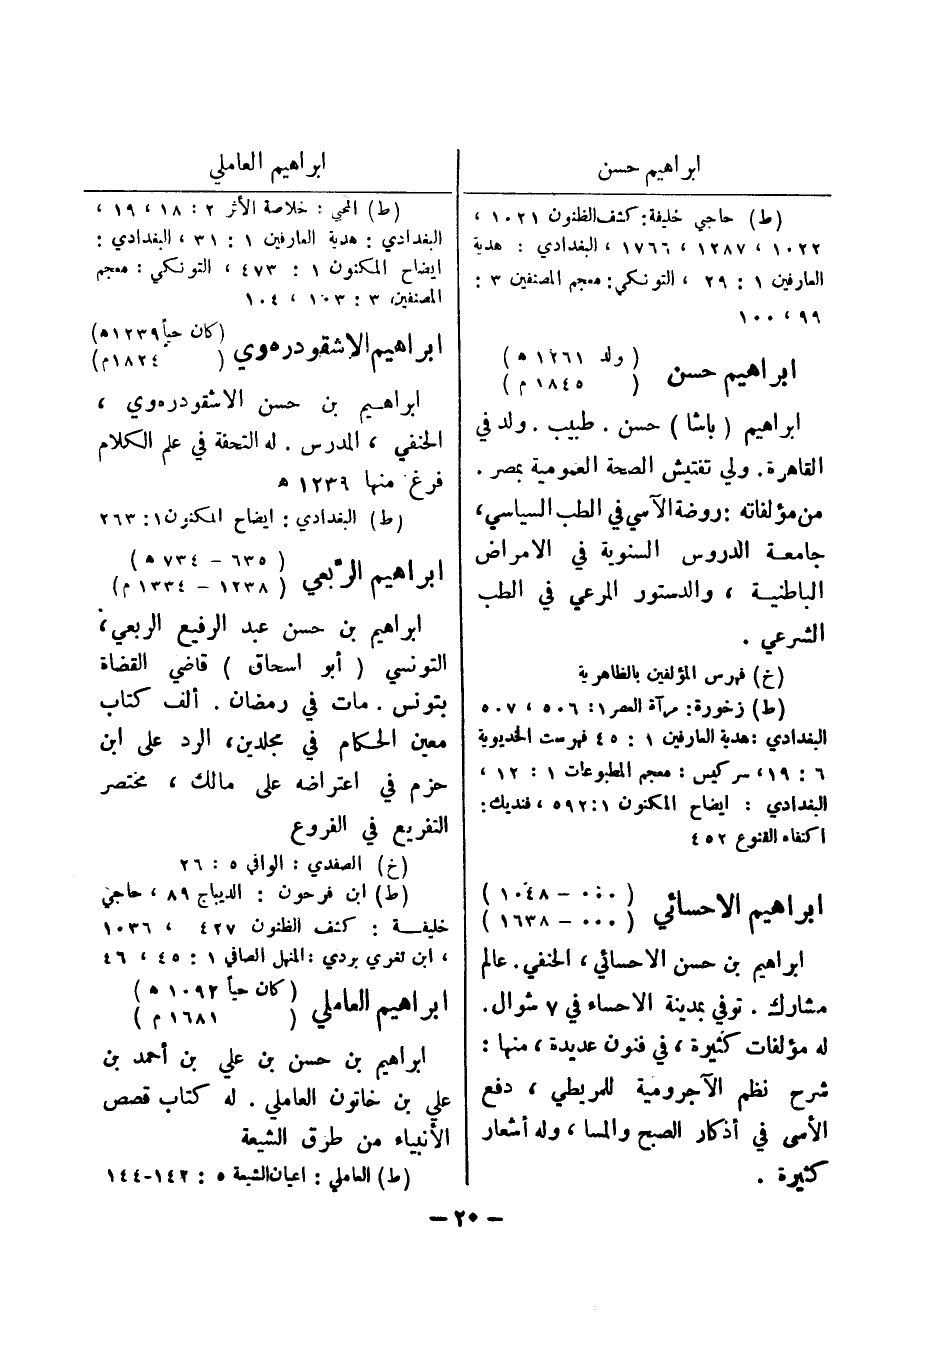 ابراهيم حسن
(ط) حاجي خليفة: كشف الظنون ١٠٢١ ،
١٠٢٢ ، ١٢٨٧ ، ١٧٦٦ ، البغدادي : هدية
العارفين ١ : ٢٩ ، التونكي: معجم المصنفين ٣ :
٩٩ ، ١٠٠
ابراهيم حسن ( ولد ١٢٦١ هـ )
( ١٨٤٥ م )
ابراهيم ( باشا ) حسن . طبيب . ولد في
القاهرة . ولي تفتيش الصحة العمومية بمصر .
من مؤلفاته : روضة الآسي في الطب السياسي ،
جامعة الدروس السنوية في الامراض
الباطنية ، والدستور المرعي في الطب
الشرعي .
(خ) فهرس المؤلفين بالظاهرية
(ط) زخورة: مرآة العصر ١: ٥٠٦ ، ٥٠٧
البغدادي : هدية العارفين ١ : ٤٥ فهرست الخديوية
٦ : ١٩ ، سركيس : معجم المطبوعات ١ : ١٢ ،
البغدادي : ايضاح المكنون ١ :٥٩٢ ، فنديك:
اكتفاء القنوع ٤٥٢
ابراهيم الاحسائي ( ٠٠٠ - ١٠٤٨ )
( ٠٠٠ - ١٦٣٨ )
ابراهيم بن حسن الاحسائي ، الحنفي . عالم
مشارك . توفي بمدينة الاحساء في ٧ شوال .
له مؤلفات كثيرة ، في فنون عديدة ، منها :
شرح نظم الآجرومية للمريطي ، دفع
الأسى في أذكار الصبح والمسا ، وله أشعار
كثيرة .
ابراهيم العاملي
(ط) المحبي : خلاصة الأثر ٢ : ١٨ ، ١٩ ،
البغدادي : هدية العارفين ١ : ٣١ ، البغدادي :
ايضاح المكنون ١ : ٤٧٣ ، التونكي : معجم
المصنفين ٣ : ١٠٣ ، ١٠٤
ابراهيم الاشقودره‌وي (كان حياً ١٢٣٩هـ)
( ١٨٢٤م)
ابراهيم بن حسن الاشقودره‌وي ،
الحنفي ، المدرس . له التحفة في علم الكلام
فرغ منها ١٢٣٩ هـ
(ط) البغدادي : ايضاح المكنون ١: ٢٦٣
ابراهيم الرَّبعي ( ٦٣٥ - ٧٣٤ هـ )
( ١٢٣٨ - ١٣٣٤ م )
ابراهيم بن حسن عبد الرفيع الربعي ،
التونسي ( أبو اسحاق ) قاضي القضاة
بتونس . مات في رمضان . ألف كتاب
معين الحكام في مجلدين ، الرد على ابن
حزم في اعتراضه على مالك ، مختصر
التفريع في الفروع
(خ) الصفدي : الوافي ٥ : ٢٦
(ط) ابن فرحون : الديباج ٨٩ ، حاجي
خليفة : كشف الظنون ٤٢٧ ، ١٠٣٦
، ابن تغري بردي : المنهل الصافي ١ : ٤٥ ، ٤٦
ابراهيم العاملي (كان حياً ١٠٩٢ هـ )
( ١٦٨١ م )
ابراهيم بن حسن بن علي بن أحمد بن
علي بن خاتون العاملي . له كتاب قصص
الأنبياء من طرق الشيعة
(ط) العاملي : اعيان الشيعة ٥ : ١٤٢-١٤٤
— ٢٠ —